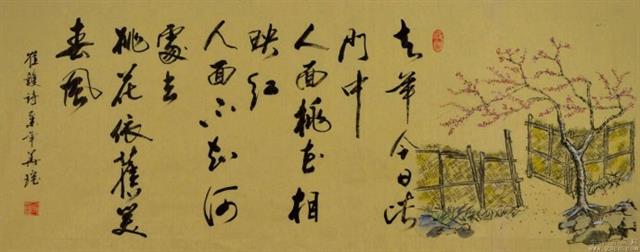 去年今日此
門中
人面桃花相
映红
人面不知何
處去
桃花依舊笑
春風
崔護诗